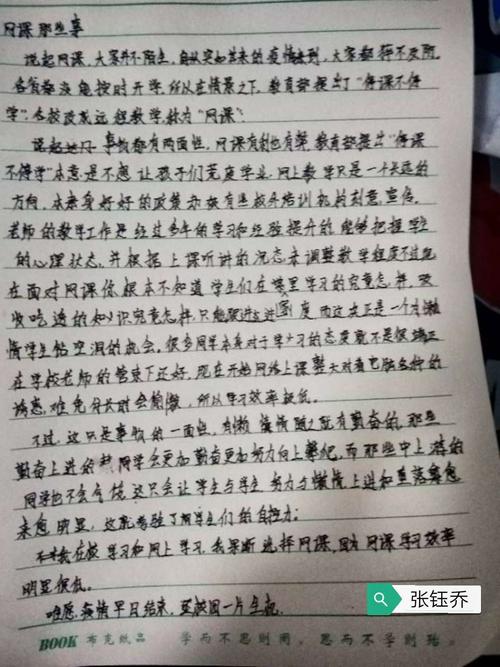 网课那些事
说起网课,大家并不陌生,自从突如其来的疫情来到,大家都猝不及防,
各省都没能按时开学,所以在情景之下,教育部提出了"停课不停
学",各校改成远程教学,称为"网课"。
事物都有两面性,网课有利也有弊,教育部提出"停课
不停学"本意是不想让孩子们荒废学业,网上教学只是一个长远的
方向,本来身好好的政策却被有些校外培训机构刻意宣传,
老师的教学工作是经过多年的学习和经验提升的,能够把握学生
的心理状态,并根据上课听讲的况态来调整教学程度不过现
在面对网课你根本不知道学生们在哪里学习的究竟怎样,吸
收吃透的知识究竟怎样,只能跟进进度而这次正是一个为懒
惰学生钻空混的机会。很多同学本来对于学习的态度就不是很端正
在学校老师的管束下还好,现在开始网络上课整天对着电脑各种的
诱惑,难免分长时会偷懒,所以学习效率极低。
不过,这只是事物的一面性,有懒惰随之既有勤奋的,那些
勤奋上进的同学会更加勤奋更加努力向上攀纪,而那些中上游的
同学也不会亏伐,这只会让学生与学生努力与懒惰上进和堕落愈
来愈明显,这就考验了同学生们的自控力。
在校学习和网上学习,我果断选择网课,因为网课学习效率
明显很低。
唯愿疫情早日结束,还校园一片生机。
BOOK 布克纸品 学而不思则罔,思而不学则殆。
张钰乔